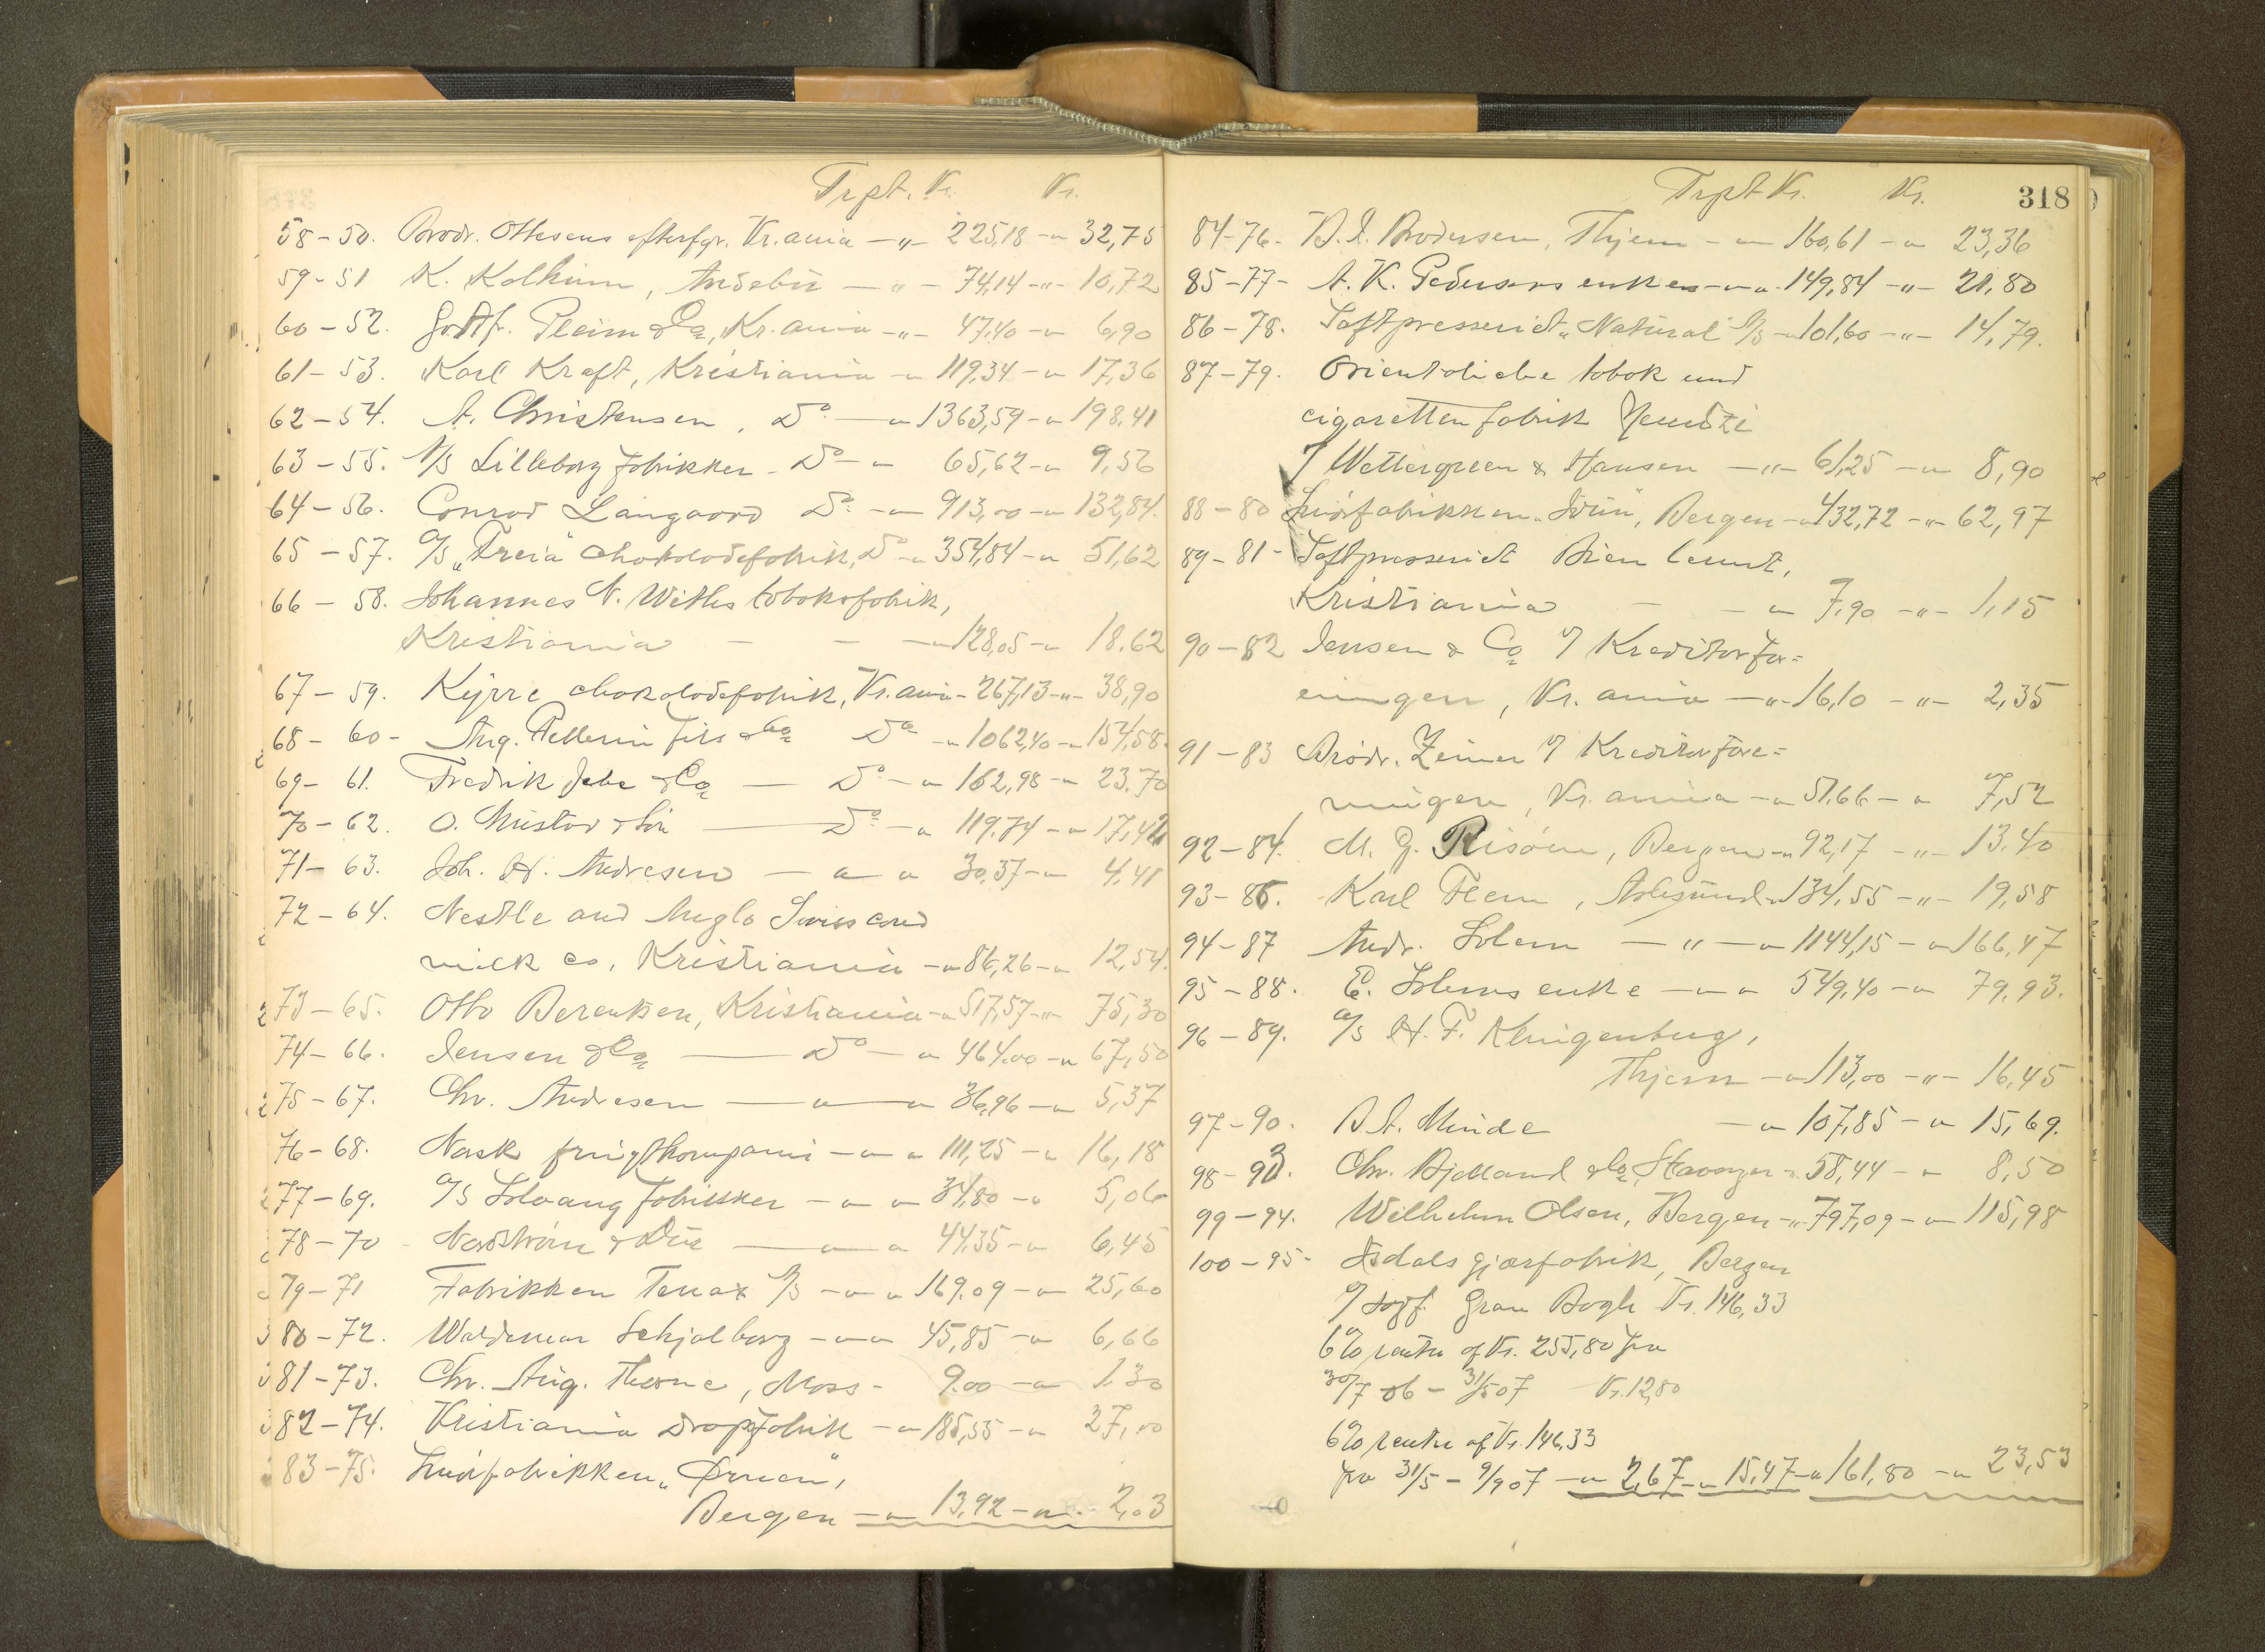 Trpt. Kr. Kr.
58-50. Brødr. Ottesens efterfgr. Kr.ania -"- 225,18 -"- 32,75
59-51 K. Kolkinn, Andebu -"- 74,14 -"- 10,72
60-52. Gottf. Pleim & Co, Kr.ania -"- 47,40 -"- 6,90
61-53. Karl Kraft, Kristiania -"- 119,34 -"- 17,36
62-54. A. Christensen, Do -"- 1363,59 -"- 198,41
63-55. A/S Lilleborg fabrikker - Do -"- 65,62 -"- 9,56
64-56. Conrad Langaard Do -"- 913,00 -"- 132,84.
65-57. A/S „Freia" chokoladefabrik, Do -"- 354,84 -"- 51,62
66-58. Johannes N. Withs tobaksfabrik,
Kristiania - - -"- 128,05 -"- 18.62
67-59. Kyrre chokoladefabrik, Kr.ania - 267,13 -"- 38,90
68-60- Aug. Pellerin fils & Co Do -"- 1062,40 -"- 154,58.
69-61. Fredrik Jebe & Co — Do -"- 162,98 -"- 23.70
70-62. O. Mustad & Søn — Do -"- 119.74 -"- 17,42
71-63. Joh. H. Andresen -"- " 30,37 -"- 4,41
72-64. Nestle and Anglo Swiss cond
milk co, Kristiania -"- 86,26 -"- 12,54.
73-65. Otto Berentzen, Kristiania -"- 517,57 -"- 75,30
74-66. Jensen & Co — Do -"- 464.00 -"- 67,50
75-67. Chr. Andresen -"- -"- 36,96 -"- 5,37
76-68. Norsk frugtkompani -"- " 111,25 -"- 16,18
77-69. A/S Solvang fabrikker -"- "- 34,80 -"- 5,06
78-70 - Nordstrøm & Due -"- " 44,35 -"- 6,45
79-71 Fabrikken Tenax A/S -"- " 169.09 -"- 25,60
80-72. Waldemar Schjølberg -"- "- 45,85 -"- 6,66
81-73. Chr. Aug. Thorne, Moss - 9.00 -"- 1.30
82-74. Kristiania dropsfabrik -"- 185,55 -"- 27,00
83-75. Smørfabrikken „Ørnen",
Bergen -"- 13,92 -"- 2,03
Trpt Kr. Kr. 318
84-76- B. I. Brodersen, Thjem -"- 160,61 -"- 23,36
85-77- A. K. Pedersens enke -"-"- 149,84 -"- 21,80
86-78. Saftpresseriet „Natural" A/S -"- 101,60 -"- 14,79.
87-79. Orientaliche tabak und
cigaretten fabrik
v/ Wettergreen & Hansen -"- 61,25 -"- 8,90
88-80 Smørfabrikken „Idun", Bergen -"- 432,72 -"- 62,97
89-81- Saftpresseriet Bien leundt,
Kristiania - -"- 7,90 -"- 1,15
90-82 Jensen & Co v/ Kreditorfor=
eningen, Kr.ania -"- 16,10 -"- 2,35
91-83 Brødr. Zeiner v/ Kreditorfore=
ningen, Kr.ania -"- 51,66 -"- 7,52
92-84. M. G. Risøen, Bergen -"- 92,17 -"- 13.40
93-86. Karl Flem, Aalesund -"- 134,55 -"- 19,58
94-87 Andr. Solem -"- -"- 1144,15 -"- 166,47
95-88. E. Solems enke -"- " 549,40 -"- 79,93.
96-89. A/S H. F. Klingenberg,
Thjem -"- 113,00 -"- 16,45
97-90. B. A. Minde -"- 107,85 -"- 15,69.
98-93. Chr. Bjelland & Co, Stavanger -"- 58,44 -"- 8,50
99-94. Wilhelm Olsen, Bergen -"- 797,09 -"- 115,98
100-95- Isdals gjærfabrik, Bergen
v/ sagf. Gran Bøgh Kr. 146,33
6% rente af Kr. 255,80 fra
30/7 06 - 31/5 07 Kr. 12,80
6% rente af Kr. 146,33
fra 31/5 - 9/9 07 -"- 2,67 -"- 15,47 -"- 161,80 -"- 23,53